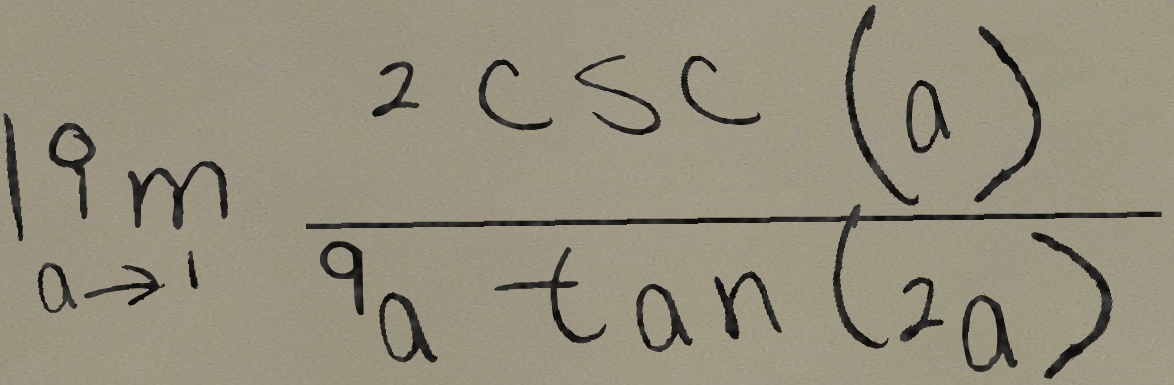 lim a→1 2 csc (a) / 9a tan (2a)